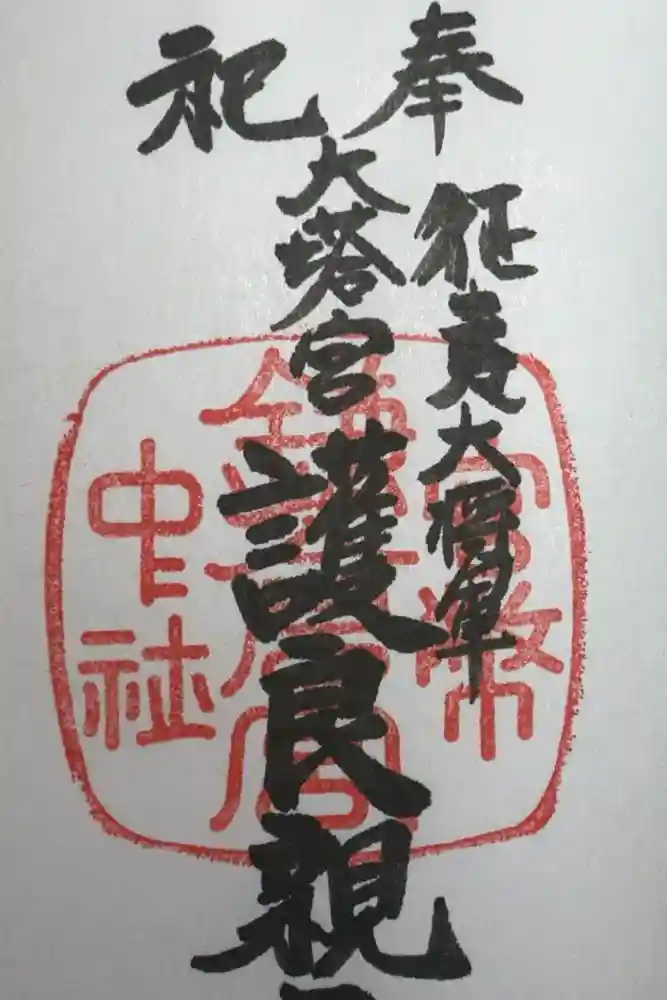 奉祀
征夷大将軍
大塔宮護良親
官幣
鎌倉宮
中社